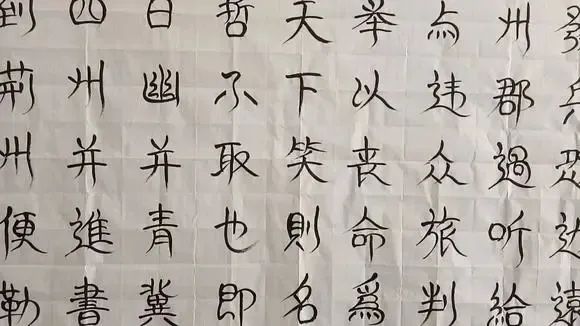 發兵恐遠
州郡過听給
与违众旅判
举以喪命爲
天下笑則名
哲不取也即
日幽并青冀
四州并進書
到荊州便勒